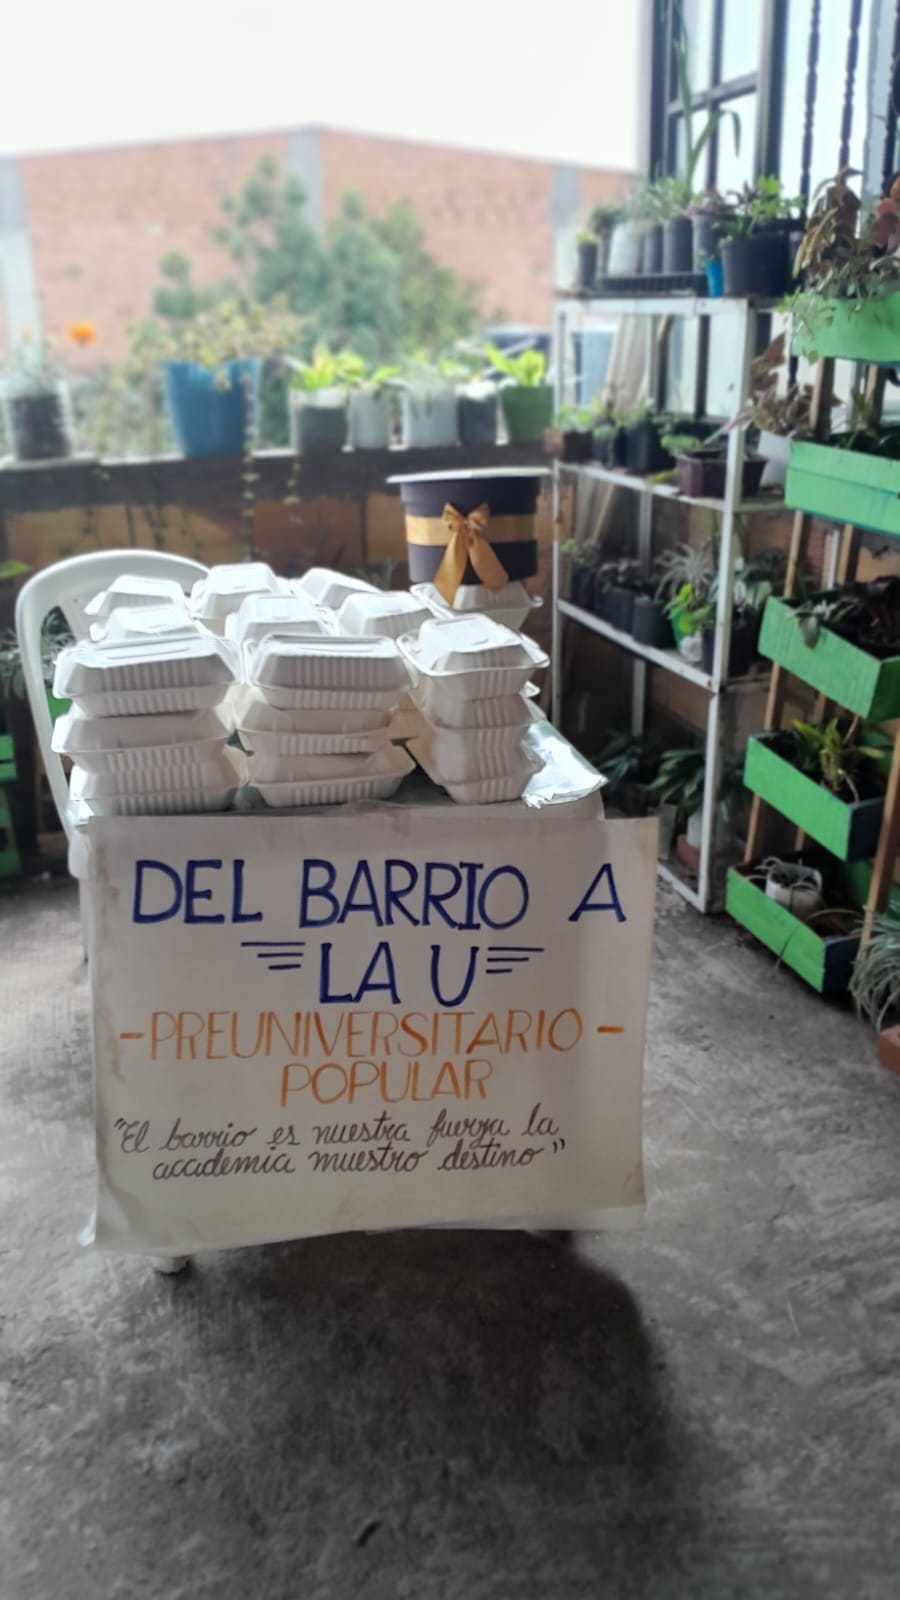 DEL BARRIO A
LA U
-PREUNIVERSITARIO-
POPULAR
"El barrio es nuestra fuerza la
academia muestro destino"